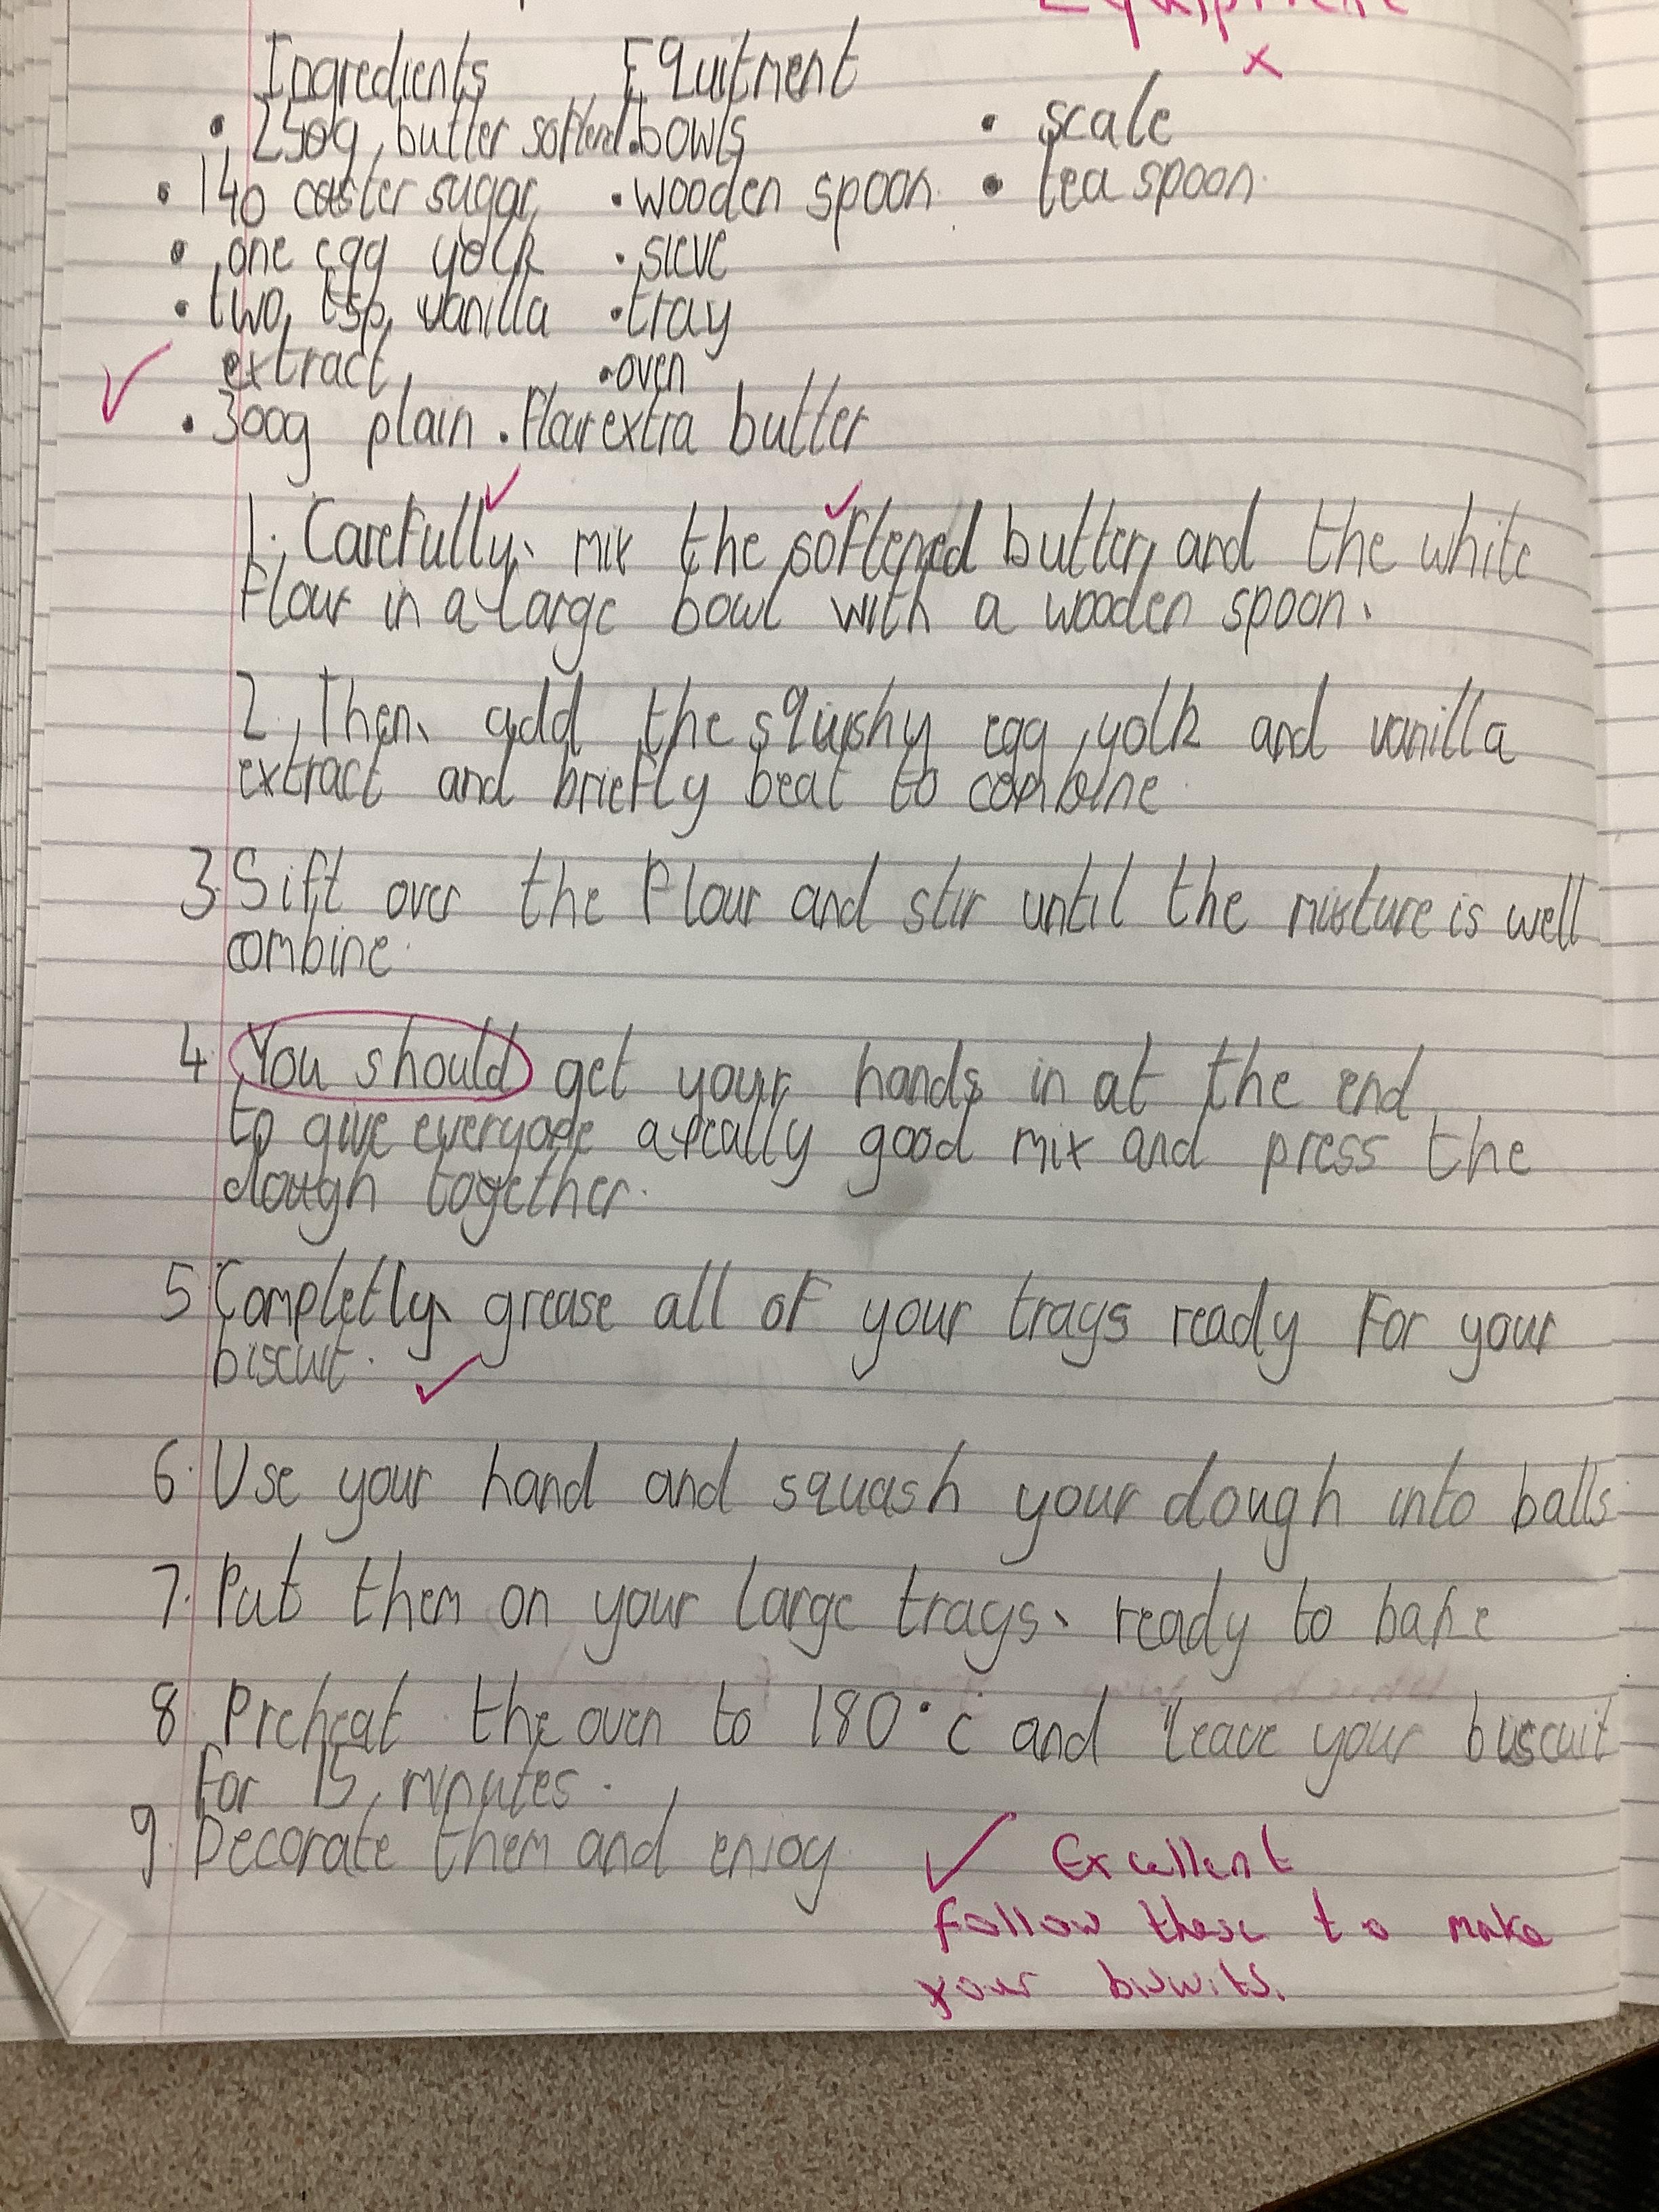 Equipment
x
Ingredients Equitment
• 250g butter softend • bowls • scale
• 140 caster sugar • wooden spoon • tea spoon
• one egg yolk • sieve
• two tsp vanilla • tray
extract • oven
• 300g plain • flour extra butter
1. Carefully, mix the softened butter and the white
flour in a large bowl with a wooden spoon.
2. Then, add the squishy egg yolk and vanilla
extract and briefly beat to combine
3. Sift over the flour and stir until the mixture is well
combine.
4. You should get your hands in at the end
to give everyone a really good mix and press the
dough together.
5. Completly, grease all of your trays ready for your
biscuit.
6. Use your hand and squash your dough into balls
7. Put them on your large trays, ready to bake
8. Preheat the oven to 180°c and leave your biscuit
for 15 minutes.
9. Decorate them and enjoy
Excellent
follow these to make
your biscuits.